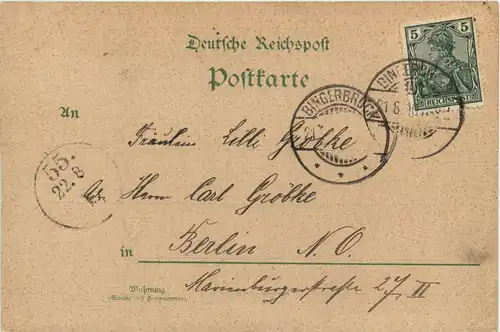 5
REICHSPOST
Deutsche Reichspost
Postkarte
BINGERBRÜCK
21 8
An
Fräulein Lilli Gröbke
55.
22. 8
Adr. Herrn Carl Gröbke
in Berlin N.O.
Marienburgerstraße 27/ II
Wohnung
(Straße und Hausnummer)